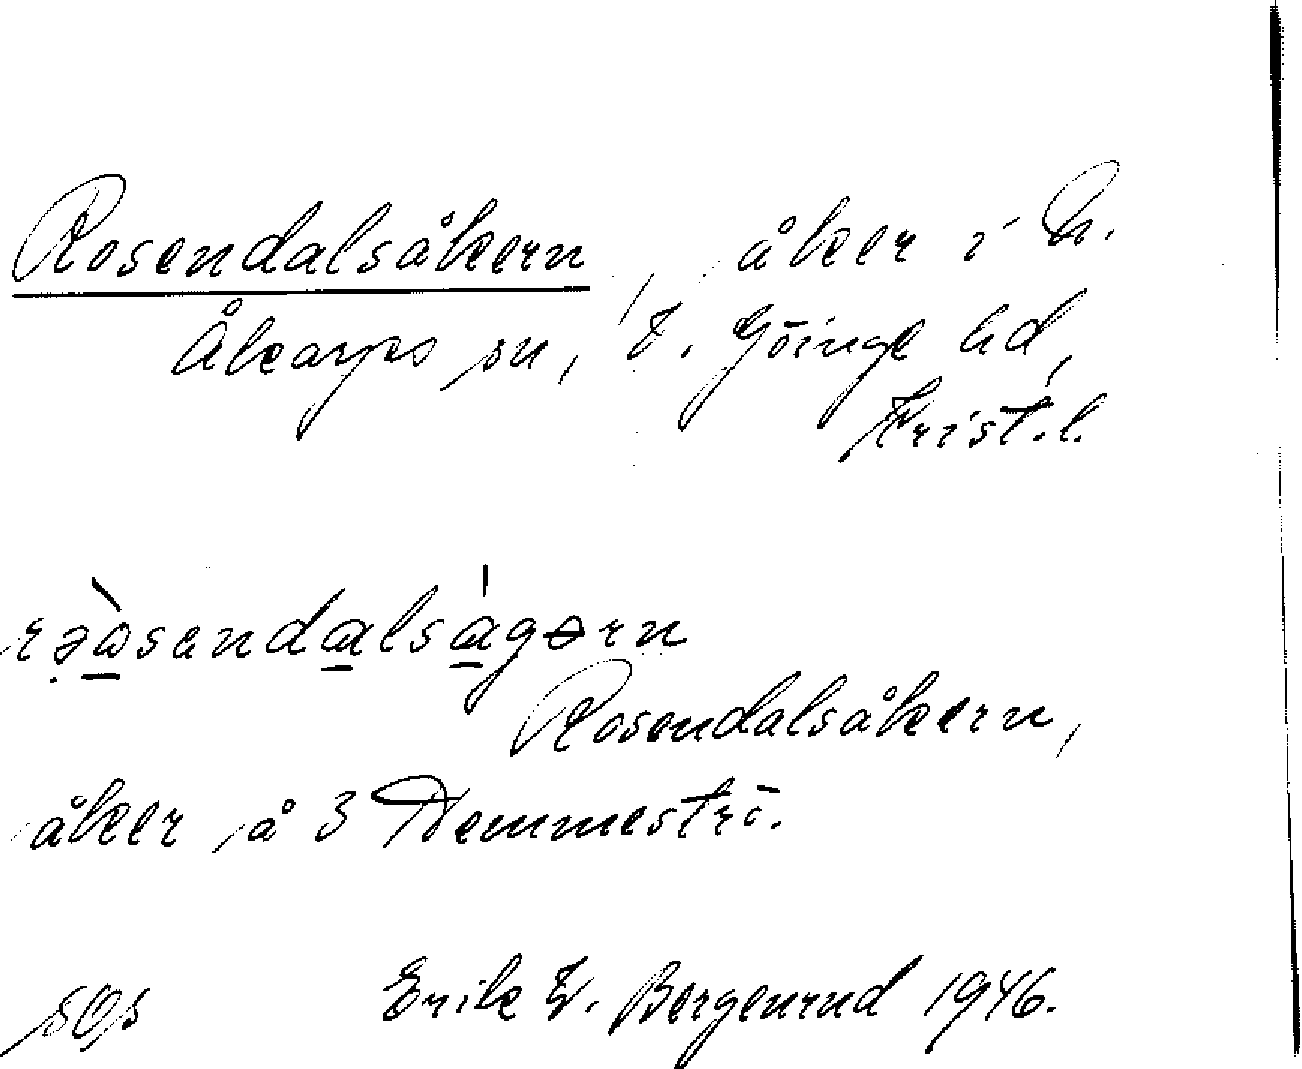 Rosendalsåkern, åker i N.
Åkarps sn, V. Göinge hd,
Krist. l.
Rosendalsåkern,
åker på 3 Hemmeströ.
sOs Erik W. Bergenrud 1946.